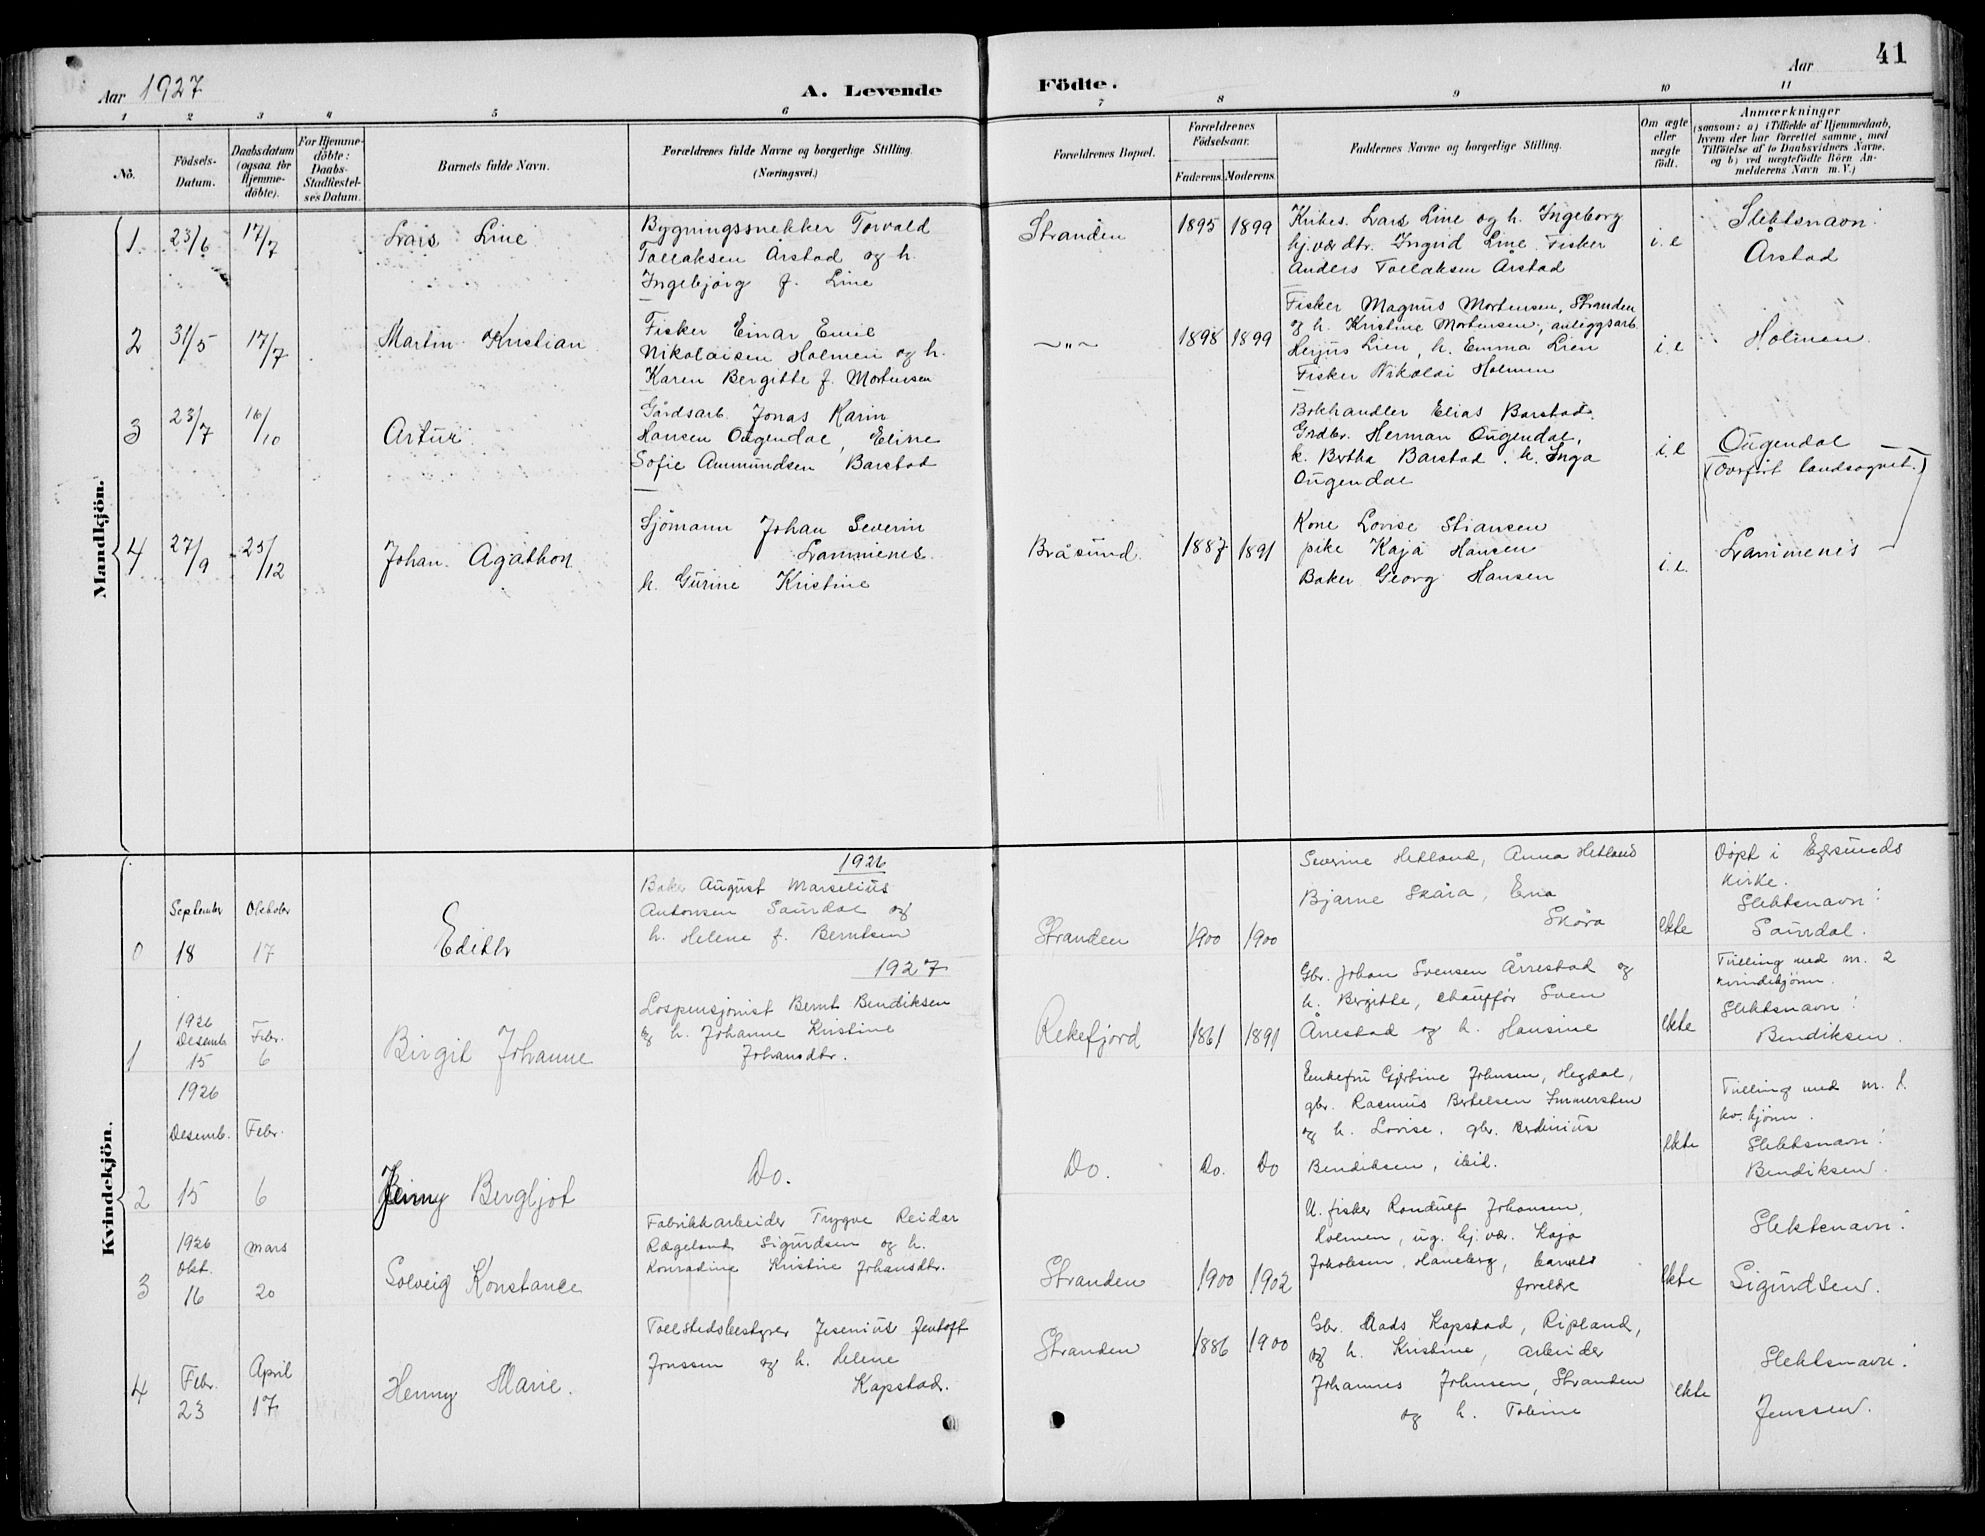 41
Aar 1927
A. Levende
Födte.
Aar
1 2 3 4 5 6 7 8 9 10 11
No.
Födsels-
Datum.
Daabsdatum
(ogsaa for
Hjemme-
döbte).
For Hjemme-
döbte:
Daabs-
Stadfæstel-
ses Datum.
Barnets fulde Navn.
Forældrenes fulde Navne og borgerlige Stilling.
(Næringsvei.)
Forældrenes Bopæl.
Forældrenes
Födselsaar.
Faderens. Moderens.
Faddernes Navne og borgerlige Stilling.
Om ægte
eller
uægte
födt.
Anmærkninger
(saasom: a) i Tilfælde af Hjemmedaab,
hvem der har forrettet samme, med
Tilföielse af to Daabsvidners Navne,
og b) ved uægtefödte Börn An-
melderens Navn m. V.)
Mandkjön.
1 23/6 17/7 Lars Line
Bygningssnekker Torvald
Tollaksen Årstad og h.
Ingebjörg f. Line
Stranden 1895 1899
Kirkes. Lars Line og h. Ingeborg
hj.vær. dtr. Ingrid Line. Fisker
Anders Tollaksen Årstad
i. e
Slektsnavn:
Årstad
2 31/5 17/7 Martin Kristian
Fisker Einar Emil
Nikolaisen Holmen og h.
Karen Bergitte f. Mortensen
— „ — 1898 1899
Fisker Magnus Mortensen, Stranden
og h. Kristine Mortensen, anleggsarb.
Herjus Lien, h. Emma Lien
Fisker Nikolai Holmen
i. e
Holmen.
3 23/7 16/10 Artur
Gårdsarb. Jonas Karin
Hansen Ougendal, Eline
Sofie Ammundsen Barstad
Bokhandler Elias Barstad.
Grdbr. Herman Ougendal,
k. Bertha Barstad. h. Inga
Ougendal
i. e
Ougendal
(Overfört landsognet.)
4 27/9 25/12 Johan Agathon
Sjömann Johan Severin
Lammenes.
h. Gurine Kristine
Bråsund. 1887 1891
Kone Lovise Stiansen
pike Kaja Hansen
Baker Georg Hansen
i. e.
Lammenes
Kvindekjön.
1926
0 September 18 Oktober 17 Edith
Baker August Marselius
Antonsen Saurdal og
h. Helene f. Berntsen
Stranden 1900 1900
Severine Hetland, Anna Hetland
Bjarne Skåra, Erna
Skåra
ekte
Döpt i Egersunds
kirke.
Slektsnavn:
Saurdal.
1927
1 1926 Desemb. 15 Febr. 6 Birgit Johanne
Lospensjonist Bernt Bendiksen
og h. Johanne Kristine
Johansdtr.
Rekefjord 1861 1891
Gbr. Johan Svensen Årrestad og
h. Bergitte, chaufför Sven
Årrestad og h. Hansine
ekte
Tvilling med nr. 2
kvindekjönn.
Slektsnavn:
Bendiksen.
2 1926 Desemb. 15 Febr. 6 Jenny Bergljot
Do.
Do. Do. Do
Enkefru Johnsen, Hegdal,
gbr. Rasmus Bertelsen Immersten
og h. Lovise, gbr. Berdinius
Bendiksen, ibid.
ekte
Tvilling med nr. 1.
kv. kjönn.
Slektsnavn:
Bendiksen.
3 1926 Okt. 16 Mars 20 Solveig Konstance
Fabrikkarbeider Trygve Reidar
Rægeland Sigurdsen og h.
Konradine Kristine Johansdtr.
Stranden 1900 1902
U. fisker Rondulf Johansen,
Holmen, ug. hj. vær. Kaja
Jakobsen, Haneberg, barnets
foreldre
ekte
Slektsnavn:
Sigurdsen.
4 Febr. 23 April 17 Henny Marie.
Tollstedsbestyrer Jesenius Jentoft
Jenssen og h. Helene
Kapstad.
Stranden 1886 1900
Gbr. Mads Kapstad, Ripland,
og h. Kristine, arbeider
Johannes Johnsen, Stranden
og h. Toline
ekte
Slektsnavn:
Jenssen.